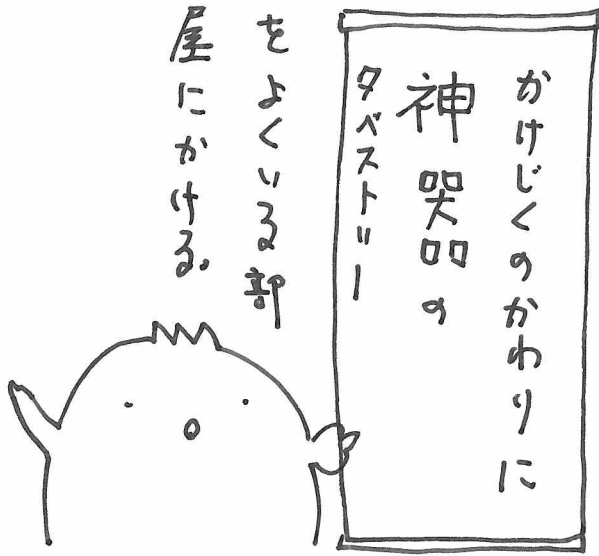 かけじくのかわりに
神器の
タペストリー
をよくいる部
屋にかける。